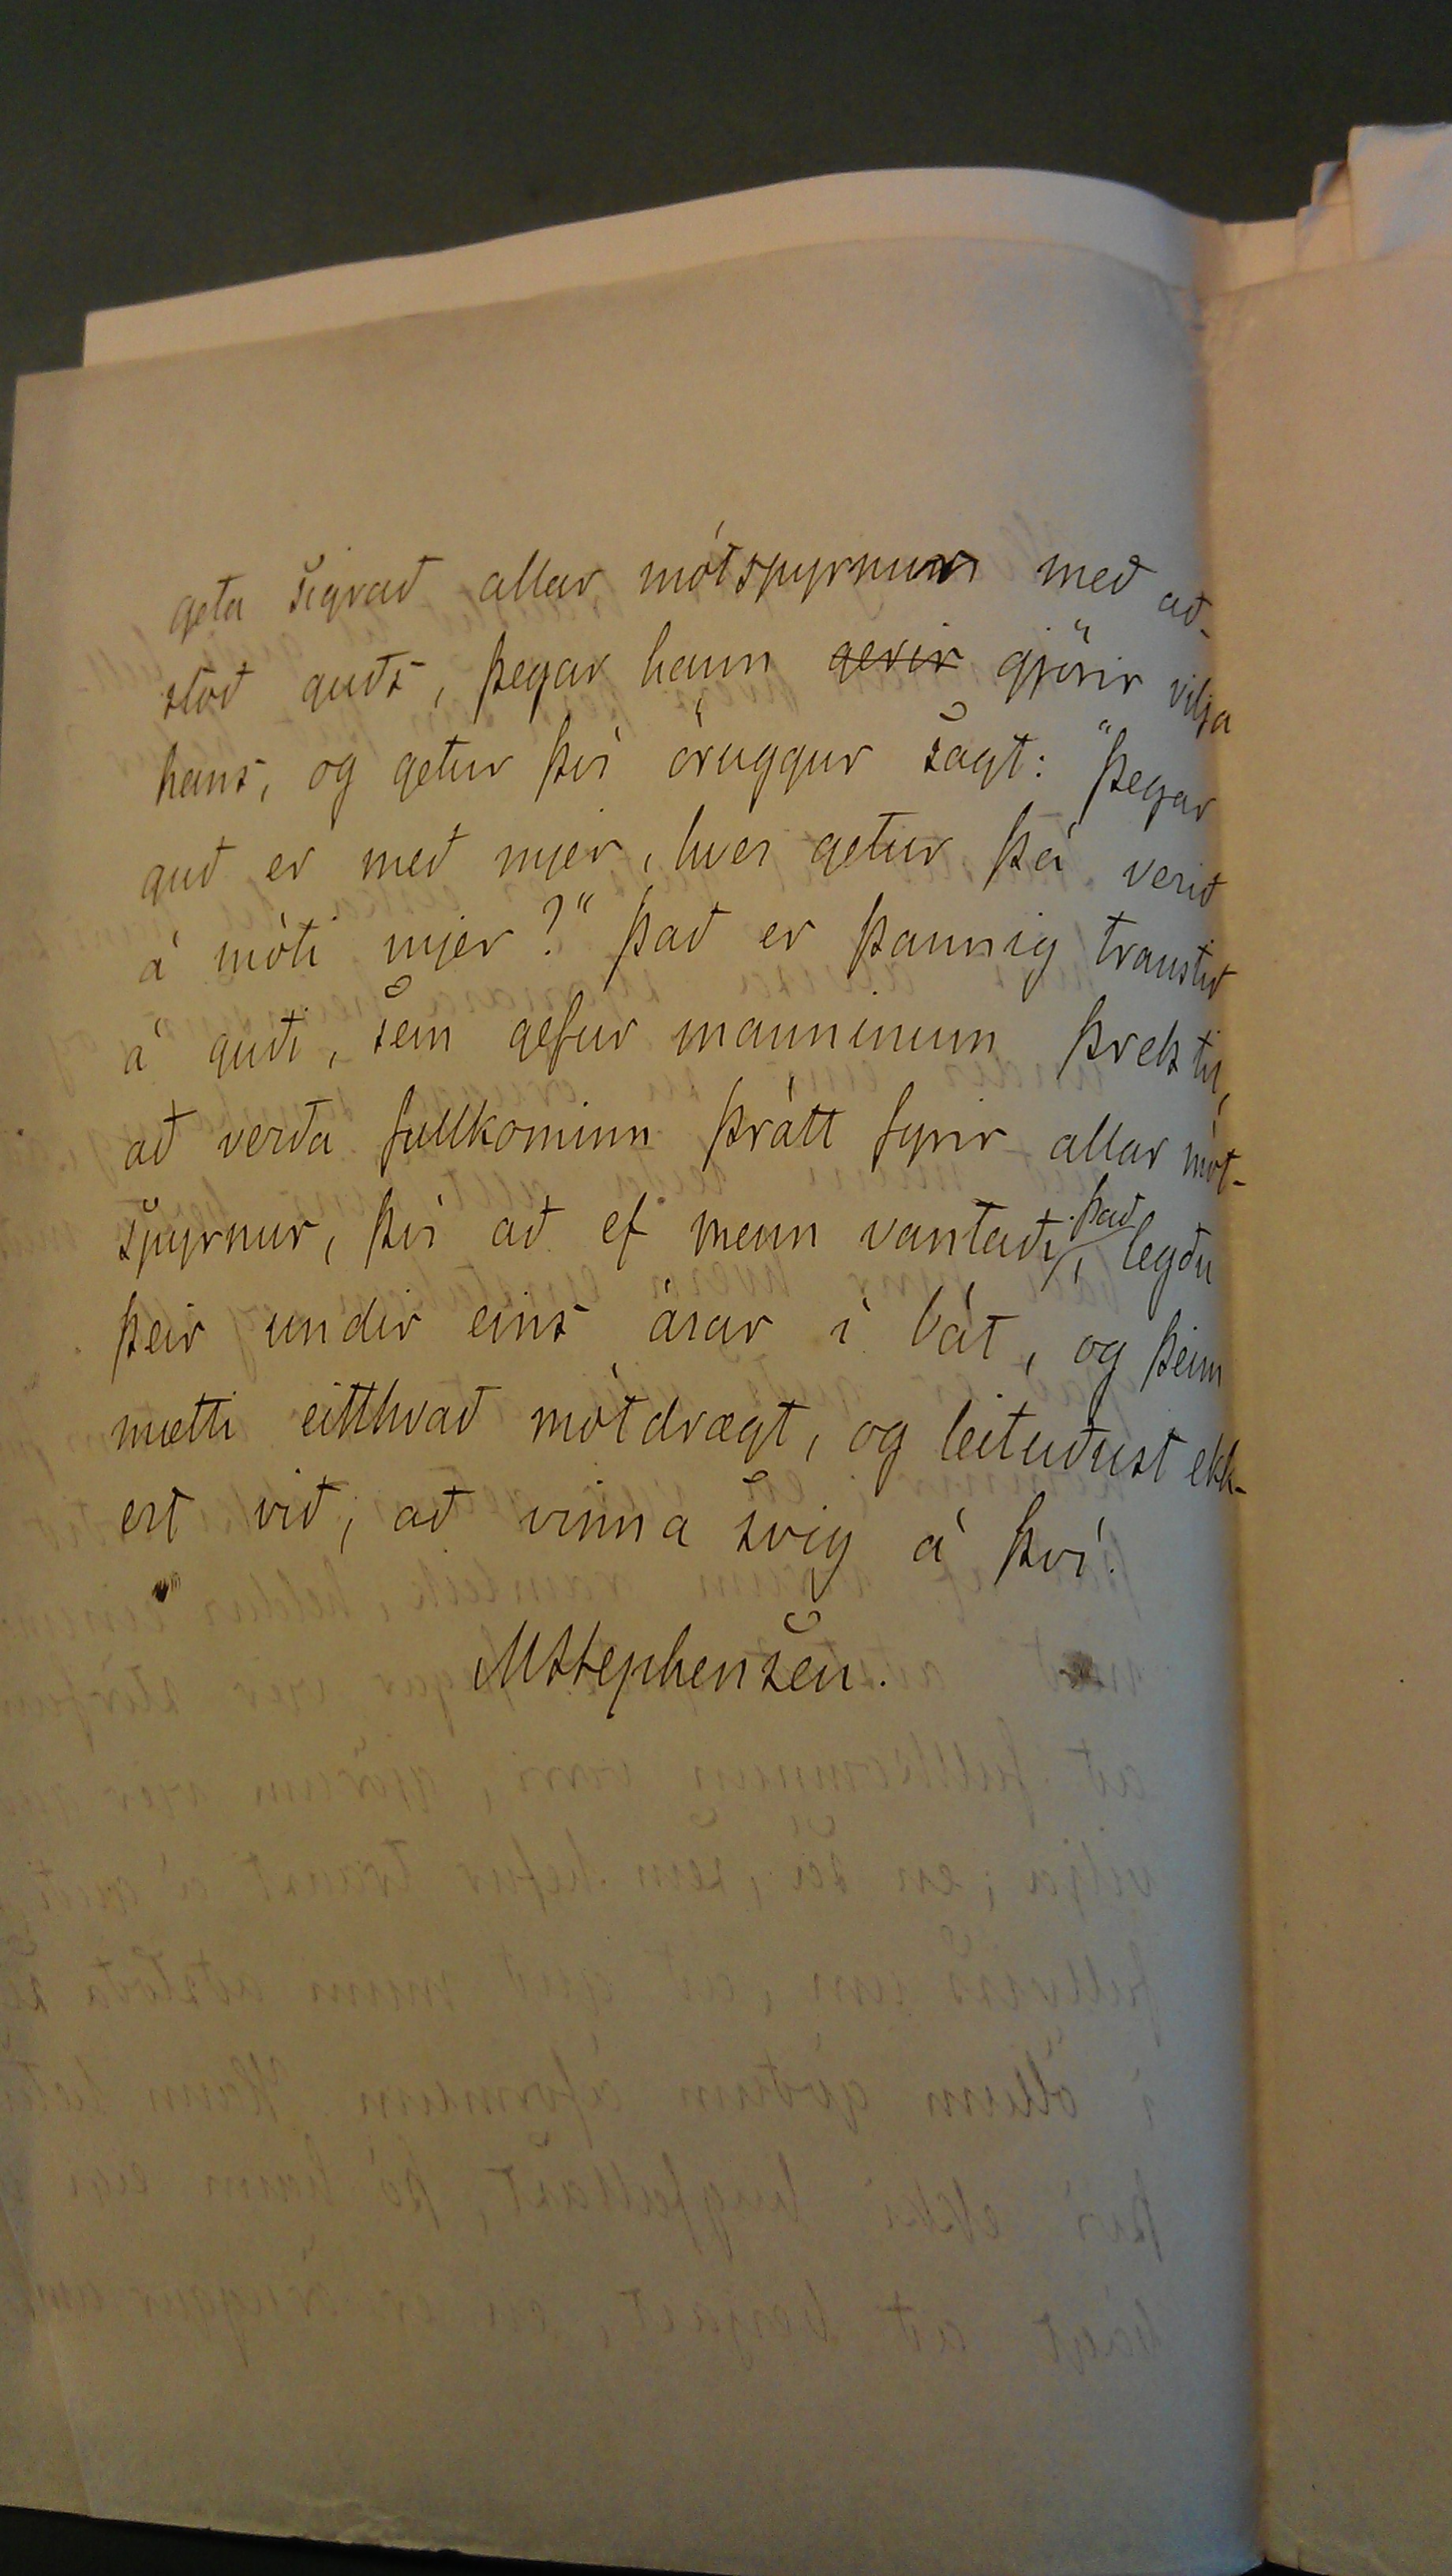 geta sigrað allar mótspyrnur með að-
stoð guðs, þegar hann gerir gjörir vilja
hans, og getur því öruggur sagt: "Þegar
guð er með mjer, hver getur þá verið
á móti mjer?" Það er þannig traustið
á guði, sem gefur manninum þrek til,
að verða fullkominn þrátt fyrir allar mót-
spyrnur, því að ef menn vantaði það, legðu
þeir undir eins árar í bát, og þeim
mætti eitthvað mótdrægt, og leituðust ekk-
ert við, að vinna svig á því.
MStephensen.